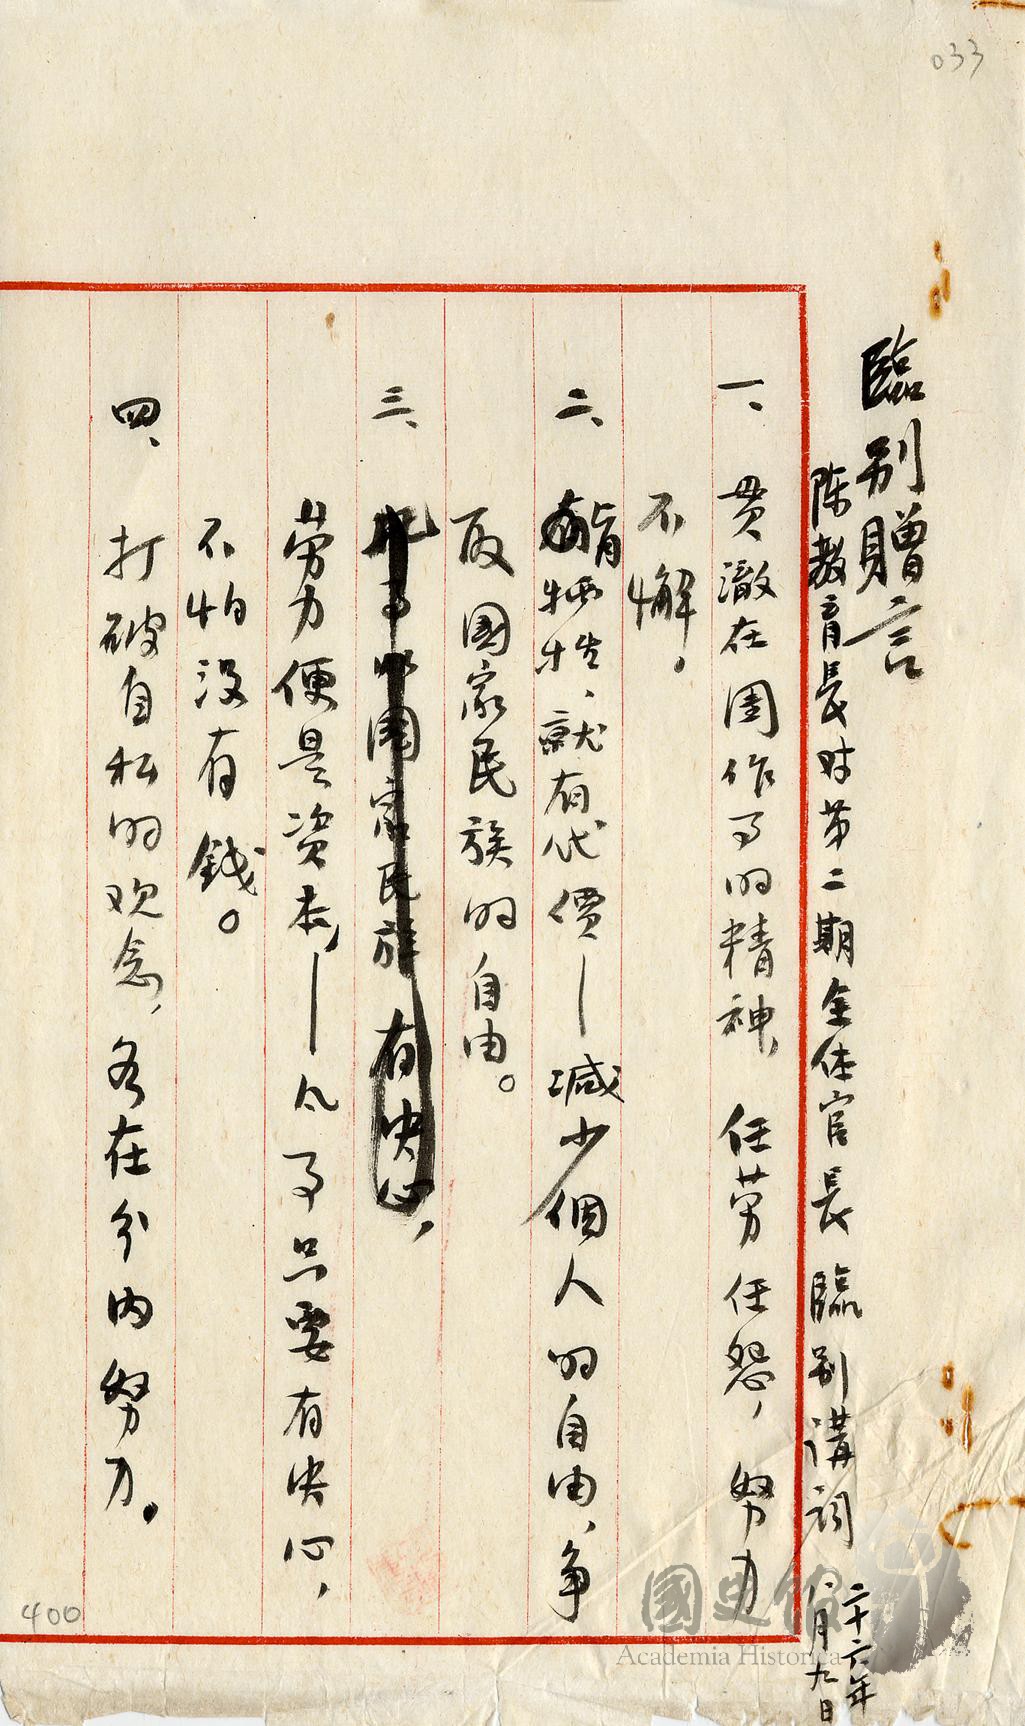 033
臨别贈言
陈教育長对第二期全体官長臨别講詞 二十六年八月九日
一、貫澈在团作事的精神，任劳任怨，努力
不懈。
二、肯牺牲、就有代價—減少個人的自由、争
取國家民族的自由。
三、國家民族 有决心，
劳力便是资本，—凡事只要有决心，
不怕没有錢。
四、打破自私的观念，各在分内努力。
400
國史館
Academia Historica